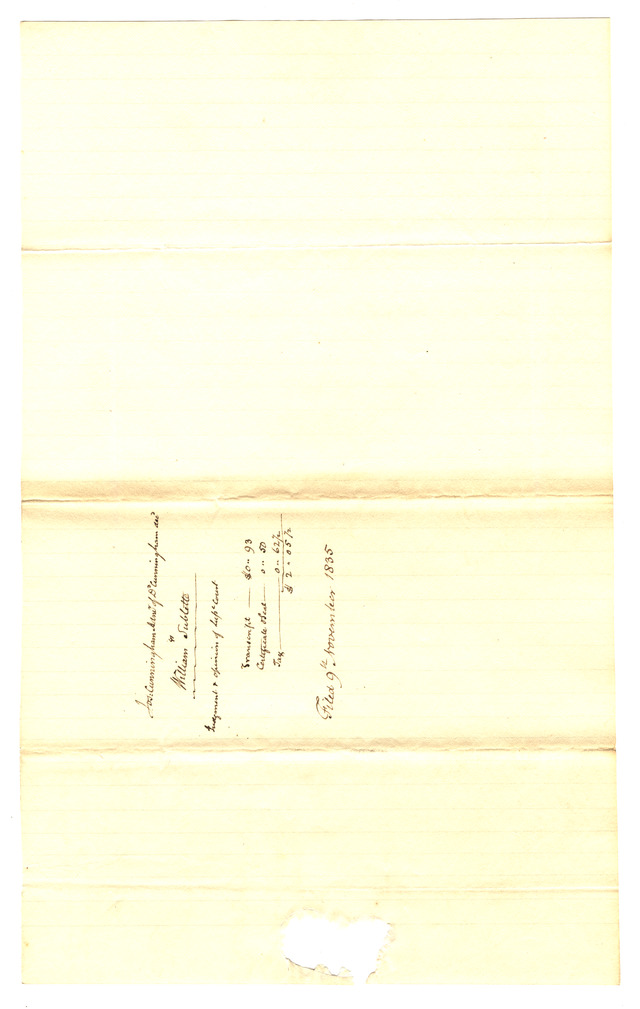 Jos. Cunningham Admr of D. Cunningham decd
vs
William Sublette
Judgment & opinion of Supe Court
Transcript — $0 " 93
Certificate & Seal — 0 " 50
Tax — 0 " 62 1/2
$ 2 " 05 1/2
Filed 9th November 1835